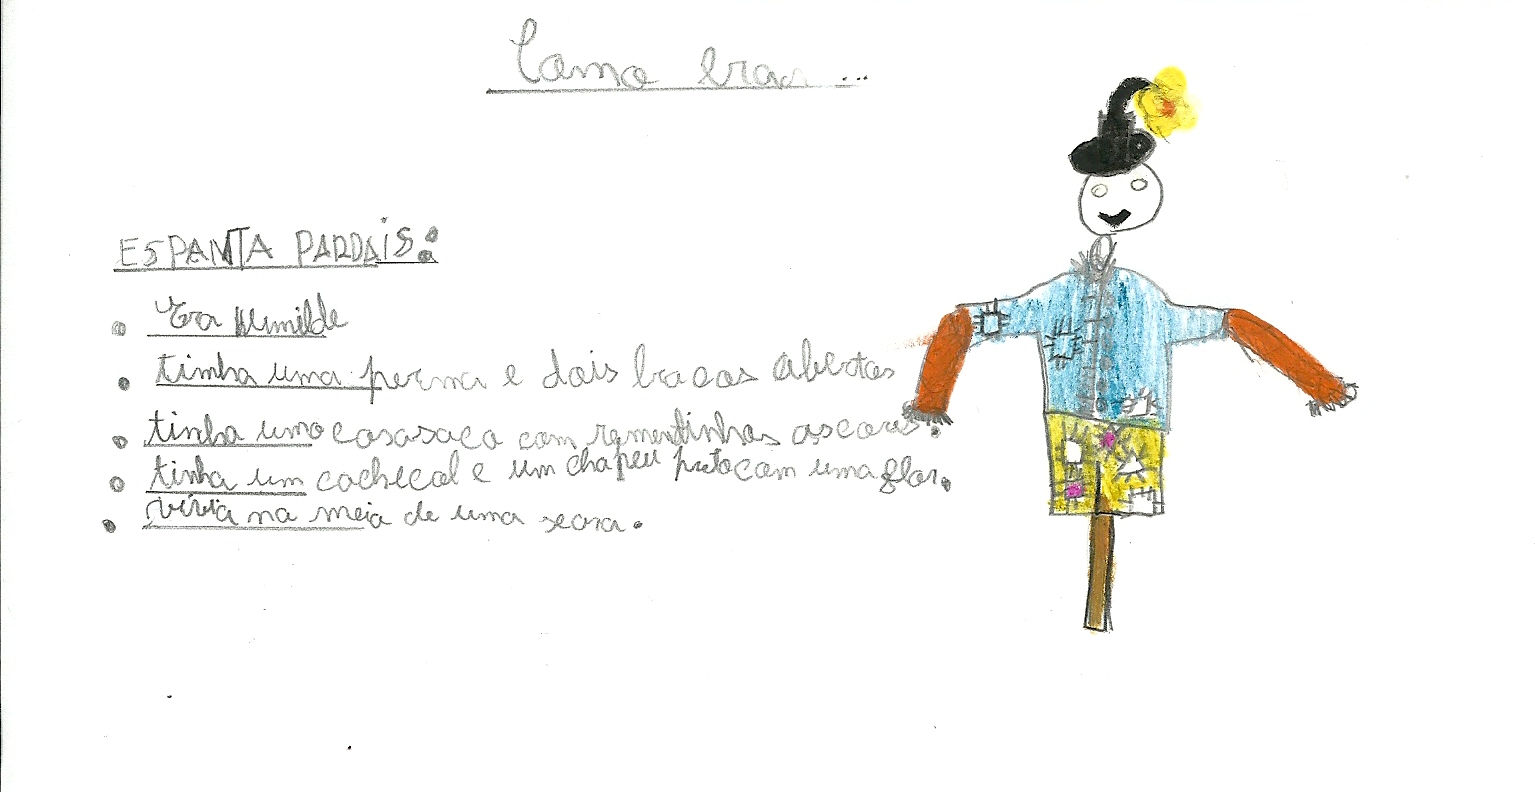 Como era ...
ESPANTA PARDAIS:
Era Humilde
tinha uma perna e dois bracos abertos
tinha uma casasaco com rementinhos as cores.
tinha um cachecol e um chapeu preto com uma flor.
vivia na meia de uma seara.